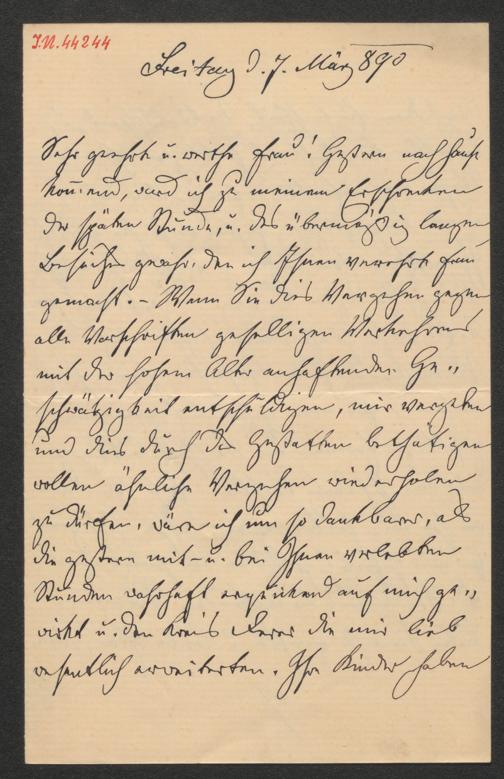 I.N. 44244
Freitag d. 7. März 890
Sehr geehrte u. werthe Frau! Gestern nach Hause
kommend, ward ich zu meinem Erschrecken
der späten Stunde, u. des übermäßig langen
Besuches gewahr, den ich Ihnen verehrte Frau
gemacht. – Wenn Sie dies Vergehen gegen
alle Vorschriften geselligen Verkehrens
mit der hohem Alter anhaftenden Ge„
schwätzigkeit entschuldigen, mir vergeben
und dies durch das Gestatten bethätigen
wollen ähnliche Vergehen wiederholen
zu dürfen, wäre ich um so dankbarer, als
die gestern mit- u. bei Ihnen verlebten
Stunden wahrhaft erquickend auf mich ge„
wirkt u. den Kreis Derer die mir lieb
wesentlich erweiterten. Ihre Kinder haben